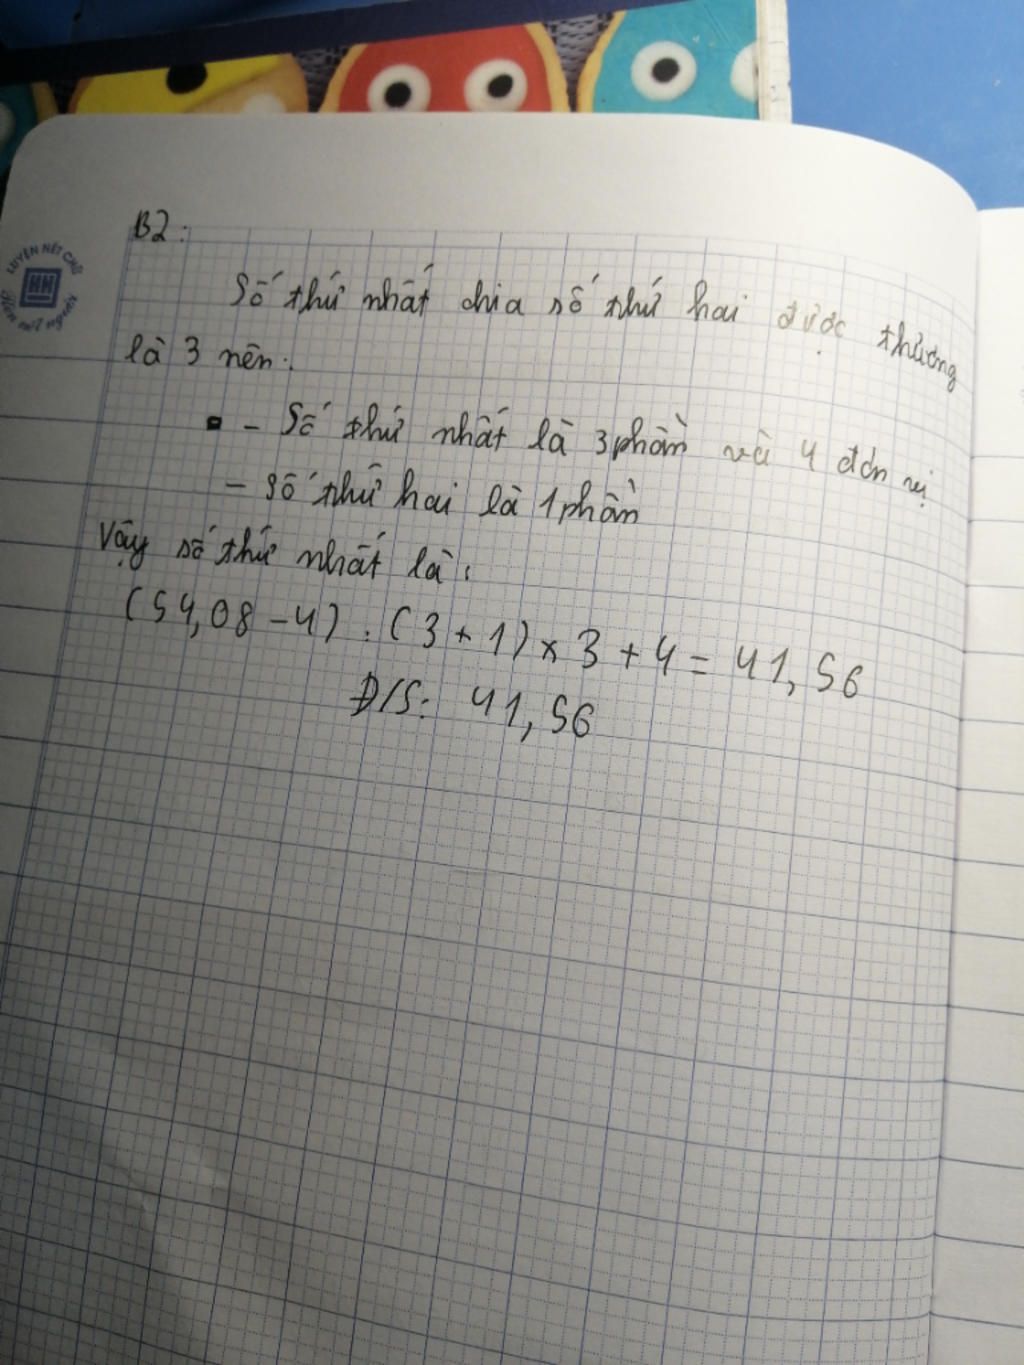 LUYỆN NÉT CHỮ
HN
Rèn nết người
B2:
Số thứ nhất chia số thứ hai được thương
là 3 nên:
- Số thứ nhất là 3 phần và 4 đơn vị
- Số thứ hai là 1 phần
Vậy số thứ nhất là:
(54,08 - 4) : (3 + 1) x 3 + 4 = 41,56
Đ/S: 41,56